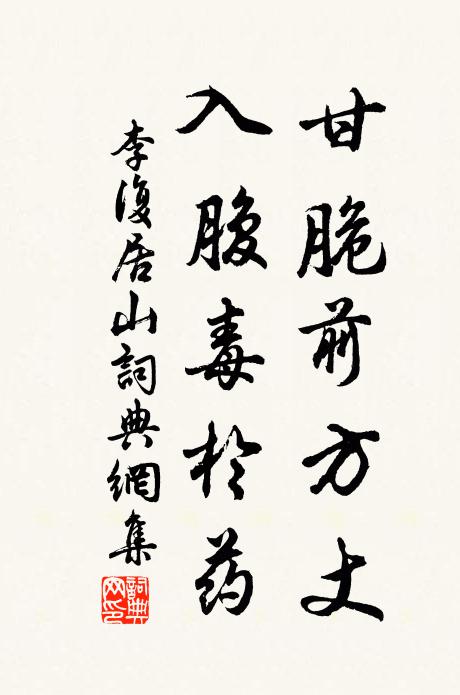 甘脆前方丈
入腹毒於药
李復居山詞典網集
詞典
网印